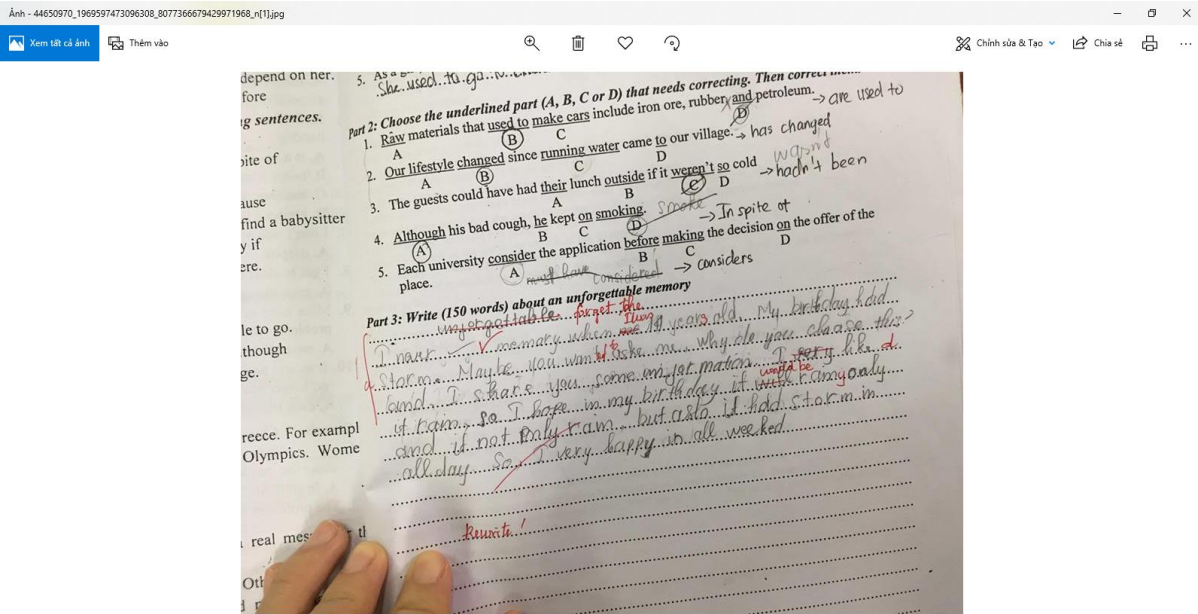 Ảnh - 44650970_1969597473096308_8077366679429971968_n[1].jpg
Xem tất cả ảnh
Thêm vào
Chỉnh sửa & Tạo
Chia sẻ
depend on her.
fore
g sentences.
ite of
ause
find a babysitter
y if
ere.
le to go.
though
ge.
reece. For exampl
Olympics. Wome
real mes
Oth
5. As a
She used to go
Part 2: Choose the underlined part (A, B, C or D) that needs correcting. Then correct
1. Raw materials that used to make cars include iron ore, rubber, and petroleum. → are used to
A B C D
2. Our lifestyle changed since running water came to our village. → has changed
A B C D
wasn't
3. The guests could have had their lunch outside if it weren't so cold → hadn't been
A B C D
4. Although his bad cough, he kept on smoking. smoke → In spite of
A B C D
5. Each university consider the application before making the decision on the offer of the
place.
A B C D
must have considered → considers
Part 3: Write (150 words) about an unforgettable memory
unforgettable forget the
I never memory when I was 10 years old. My birthday had
storm. Maybe you want to aske me, why do you choose this?
and, I share you some information. I very like
would be
it rain, so I hope in my birthday it will rainy only
and if not only rain, but also it had storm in
all day. So, I very happy in all weeked
Rewrite!